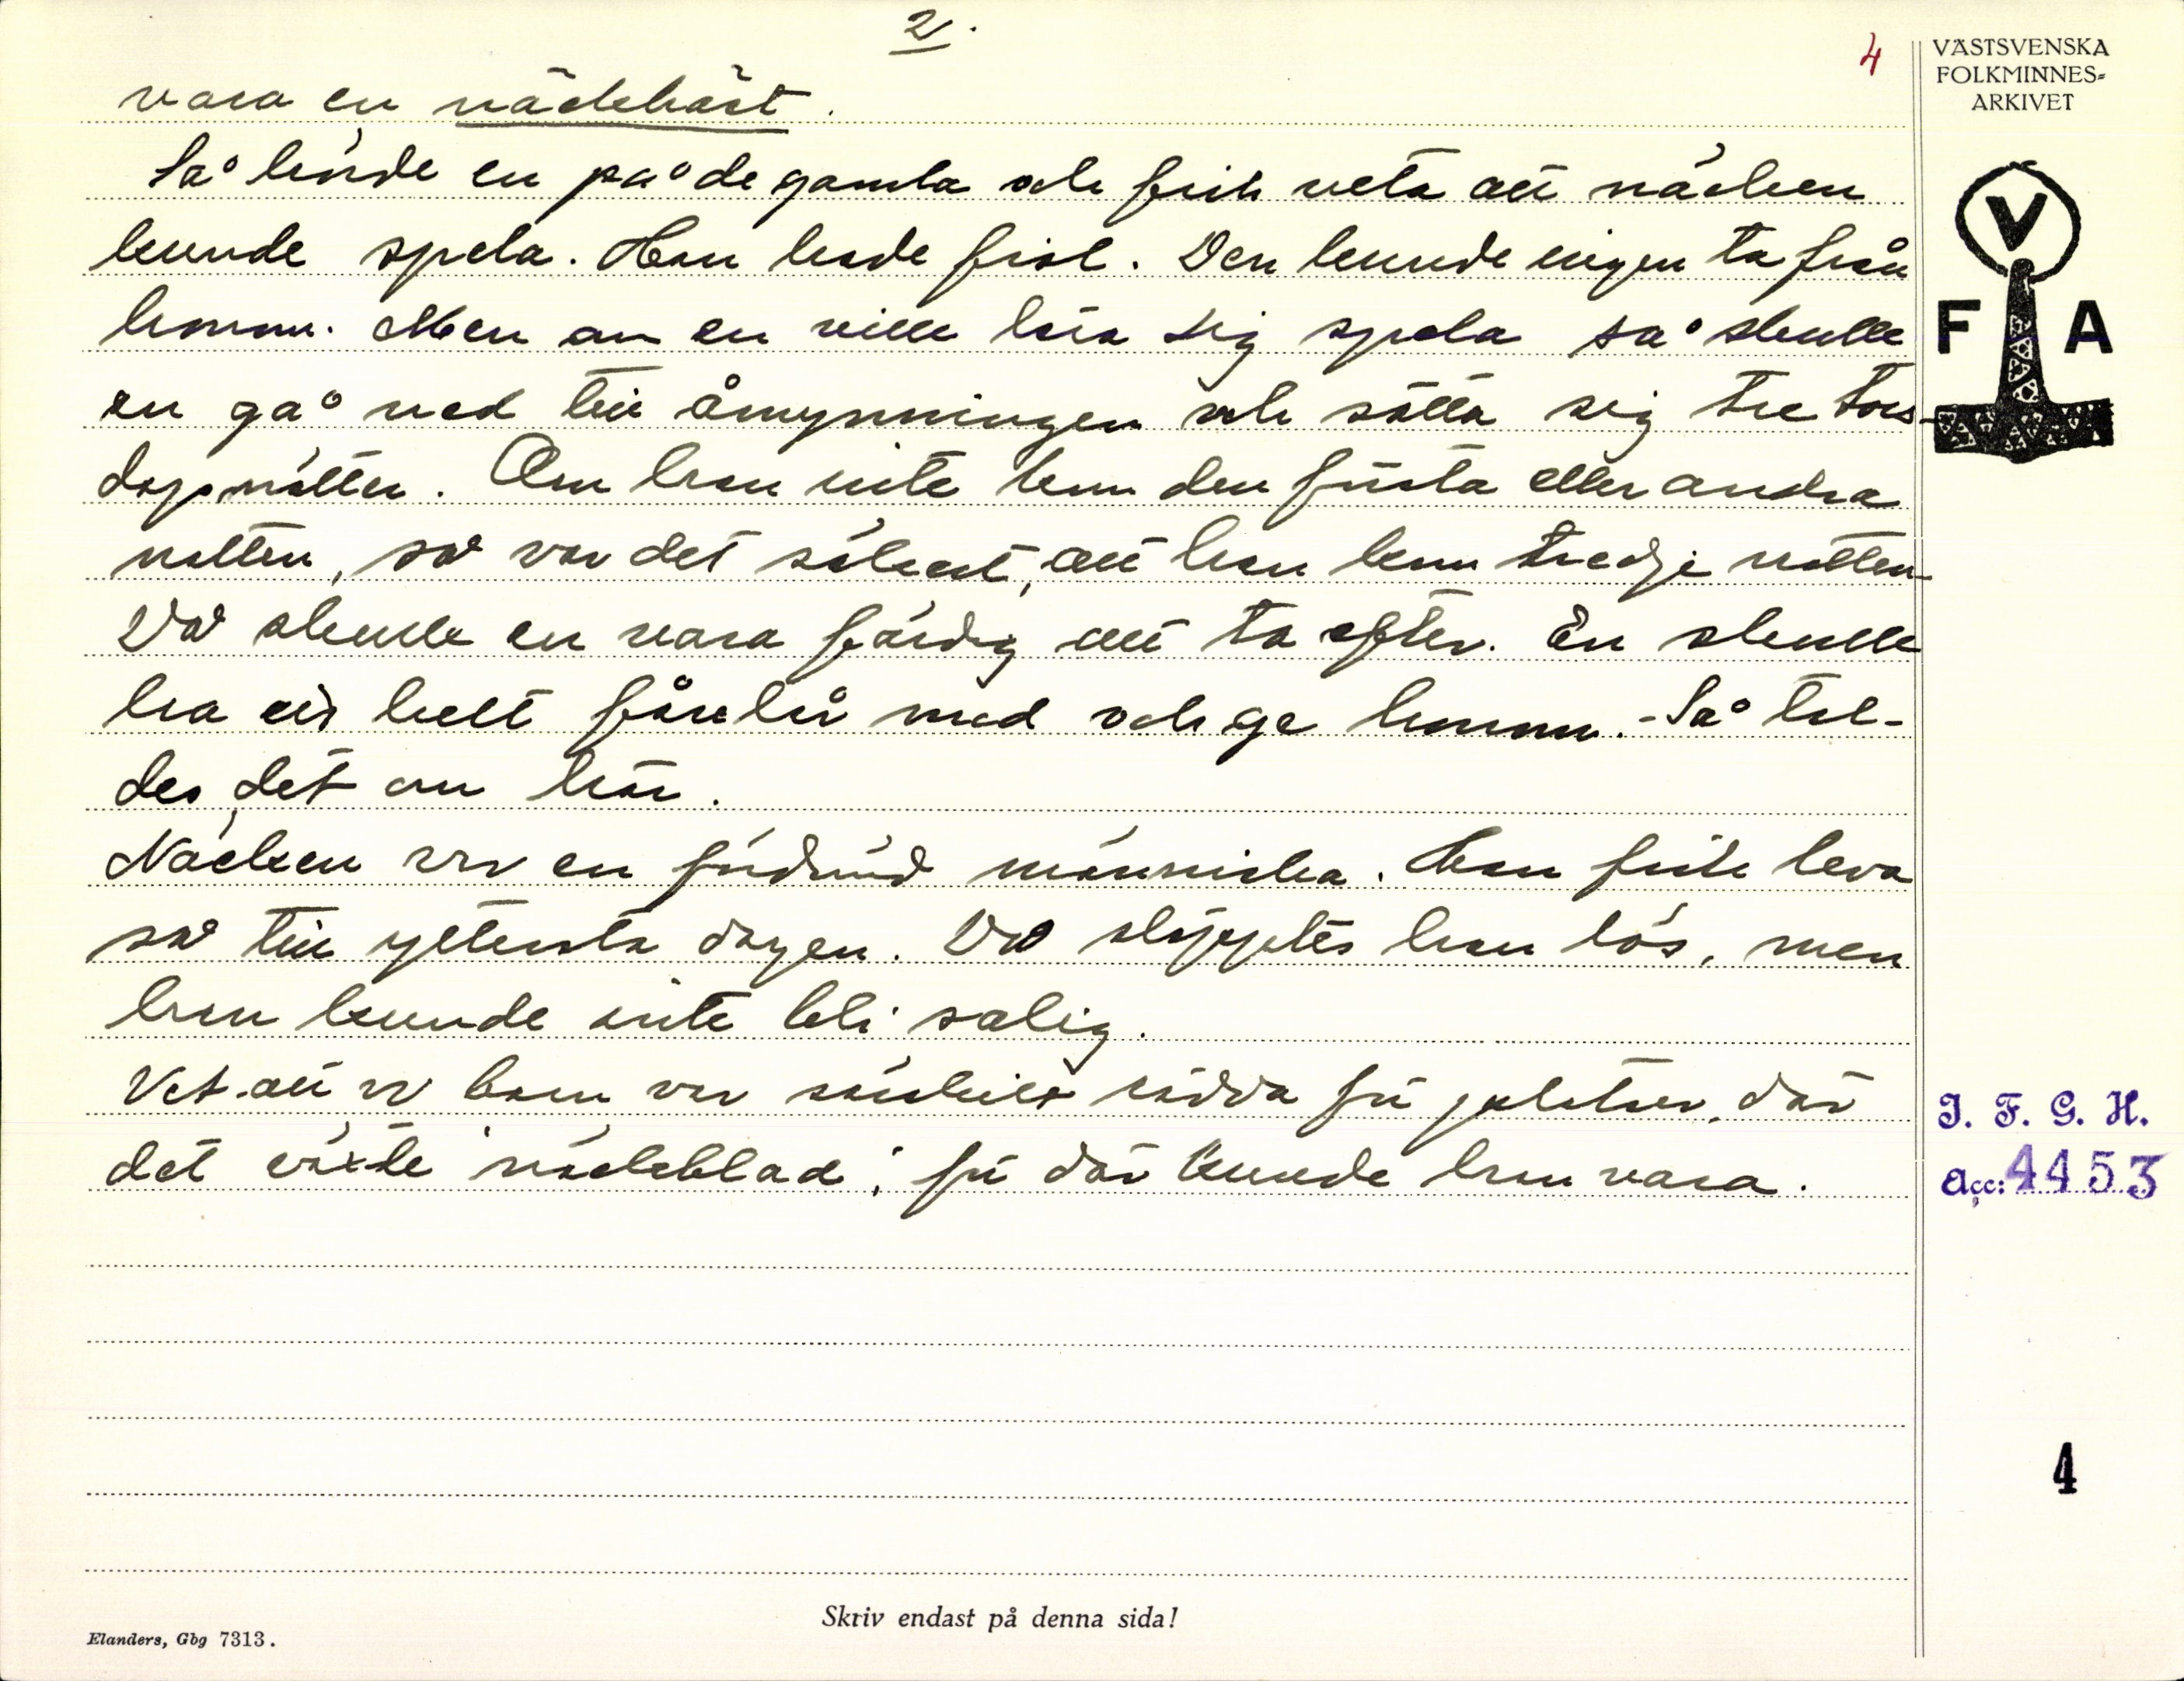 2.
4
VÄSTSVENSKA
FOLKMINNES-
ARKIVET
vara en näckhäst.
Så hörde en på de gamla och fick veta att näcken
kunde spela. Han hade fiol. Den kunde ingen ta från
honom. Men om en ville lära sig spela så skulle
en gå ned till åmynningen och sätta sig tre tors-
dagsnätter. Om han inte kom den första eller andra
natten, så var det säkert, att han kom tredje natten.
Då skulle en vara färdig att ta efter. En skulle
ha ett helt fårlår med och ge honom. - Så tal-
des det om här.
Näcken var en fördömd människa. Han fick leva
så till yttersta dagen. Då släpptes han lös, men
han kunde inte bli salig.
Vet att vi barn var särskilt rädda för platser, där
det växte näckblad; för där kunde han vara.
V
F A
I. F. G. H.
Acc: 4453
4
Skriv endast på denna sida!
Elanders, Gbg 7313.